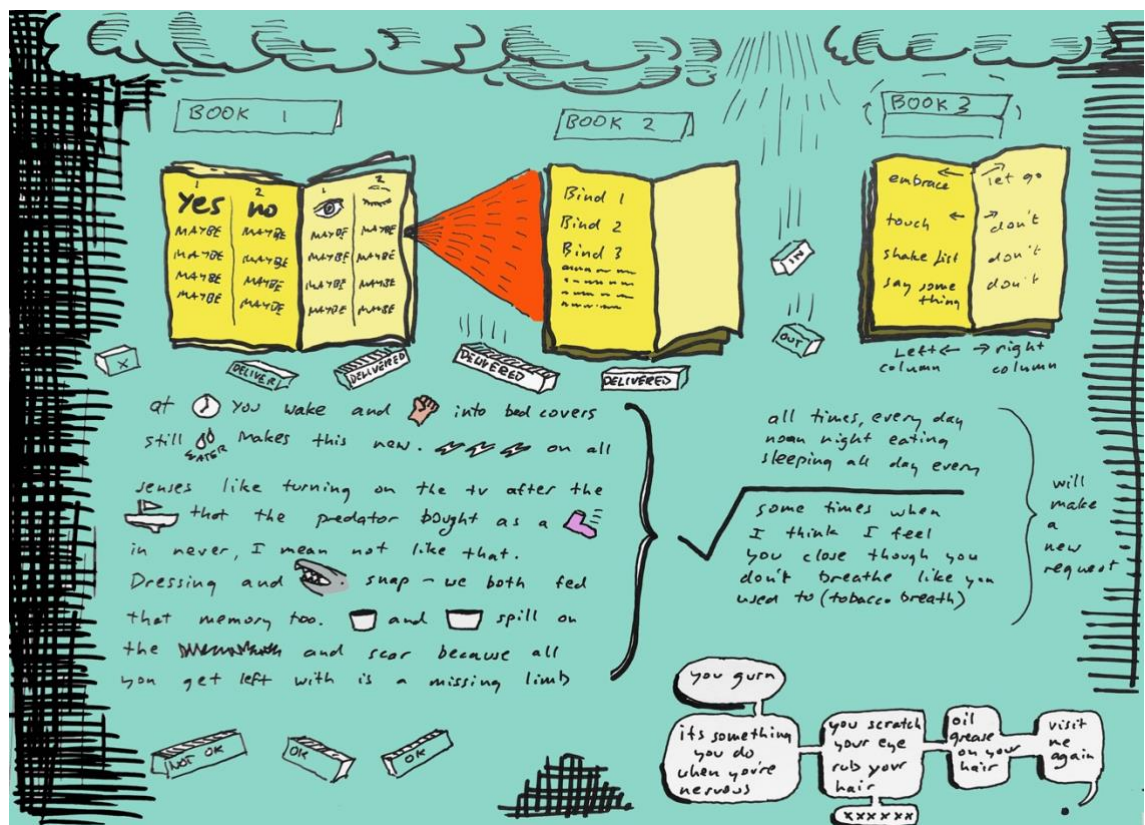 BOOK 1
BOOK 2
BOOK 3
1 2 1 2
Yes no
MAYBE MAYBE MAYBE MAYBE
MAYBE MAYBE MAYBE MAYBE
MAYBE MAYBE MAYBE MAYBE
MAYBE MAYBE MAYBE MAYBE
Bind 1
Bind 2
Bind 3
IN
OUT
embrace ← → let go
touch ← → don't
shake fist don't
say some don't
thing
Left ← → right
column column
X
DELIVER
DELIVERED
DELIVERED
DELIVERED
at you wake and into bed covers
still WATER makes this new. on all
senses like turning on the tv after the
that the predator bought as a
in never, I mean not like that.
Dressing and snap – we both fed
that memory too. and spill on
the and scar because all
you get left with is a missing limb
all times, every day
noon night eating
sleeping all day every
some times when
I think I feel
you close though you
don't breathe like you
used to (tobacco breath)
will
make
a
new
request
NOT OK
OK
OK
you gurn
its something
you do
when you're
nervous
you scratch
your eye
rub your
hair
xxxxxx
oil
grease
on your
hair
visit
me
again